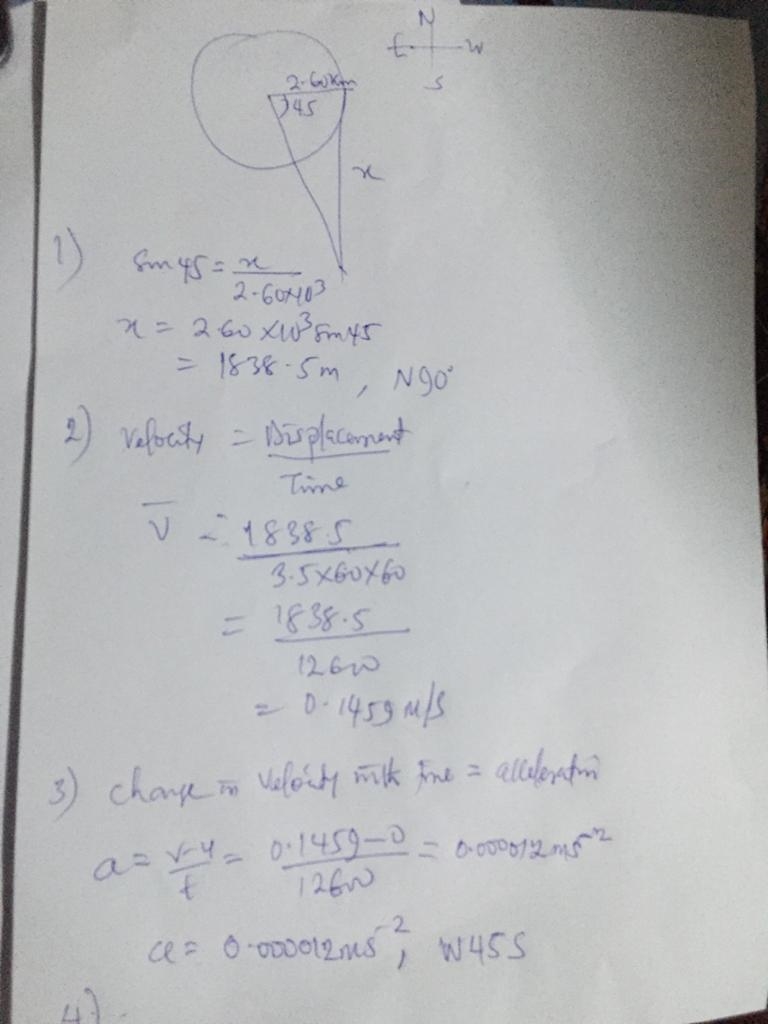 N
E W
S
2.60km
45
x
1) Sin 45 = x / 2.60×10³
x = 2.60 ×10³ Sin45
= 1838.5m, N90°
2) Velocity = Displacement / Time
V̅ = 1838.5 / 3.5×60×60
= 1838.5 / 12600
= 0.1459 m/s
3) Change in velocity with time = acceleration
a = v-u / t = 0.1459-0 / 12600 = 0.000012ms⁻²
a = 0.000012ms⁻², W45S
4)